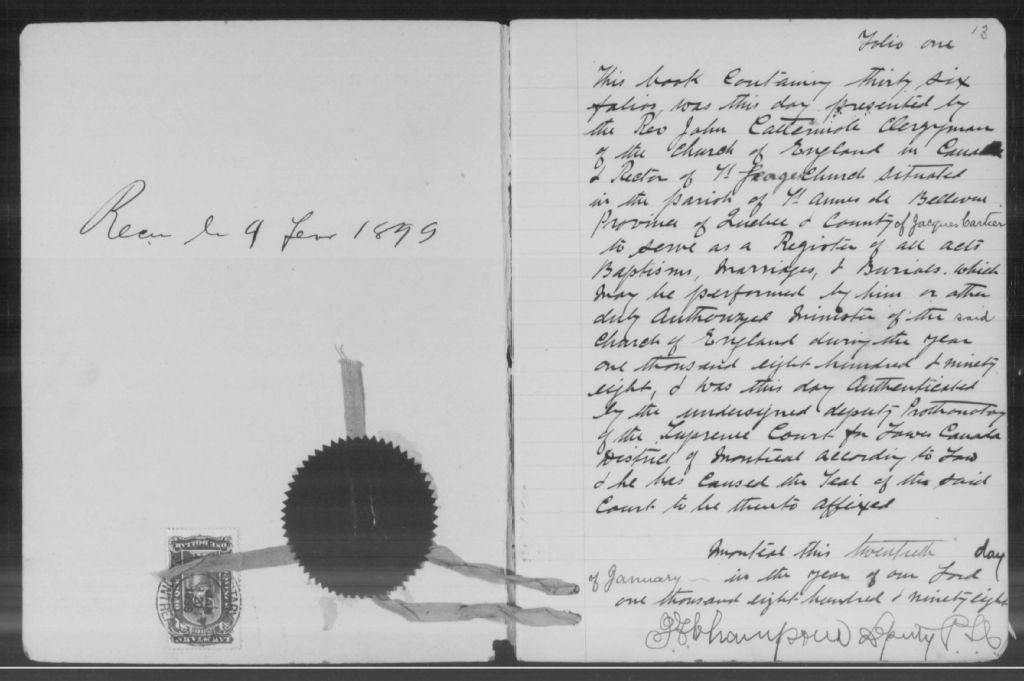 Recu le 9 Fevr 1899
ONE DOLLAR
LAW STAMP
13
Folio one
This book Containing thirty six
folios, was this day presented by
the Rev John Cattermole Clergyman
of the Church of England in Canada
& Rector of St George Church situated
in the parish of St Annes de Bellevue
Province of Quebec & County of Jacques Cartier
to serve as a Register of all acts
Baptisms, Marriages, & Burials. which
may be performed by him or other
duly Authorized Minister of the said
Church of England during the year
one thousand eight hundred & ninety
eight, & was this day Authenticated
by the undersigned deputy Prothonotary
of the Supreme Court for Lower Canada
District of Montreal According to Law
& he has Caused the Seal of the said
Court to be thereto affixed
Montreal this twentieth day
of January in the year of our Lord
one thousand eight hundred & ninety eight
Deputy P.S.C.